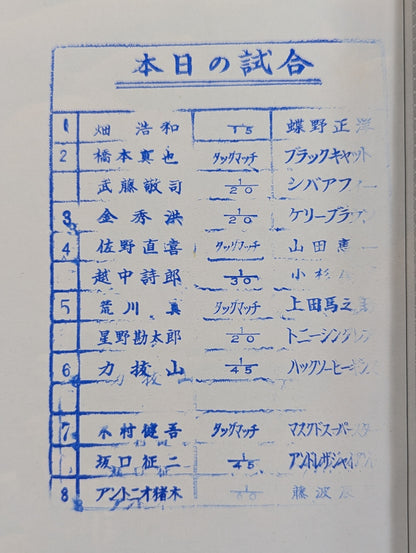 本日の試合
1 畑 浩和 1/15 蝶野正洋
2 橋本真也 タッグマッチ ブラックキャット
武藤敬司 1/20 シバアフ
3 金秀洪 1/20 ケリーブラウン
4 佐野直喜 タッグマッチ 山田恵一
越中詩郎 1/30 小杉
5 荒川真 タッグマッチ 上田馬之
星野勘太郎 1/20 トニーシン
6 力抜山 1/45 ハックソーヒーギンズ
7 木村健吾 タッグマッチ マスクドスーパースター
坂口征二 1/45 アンドレザジャイアン
8 アントニオ猪木 1/60 藤波辰